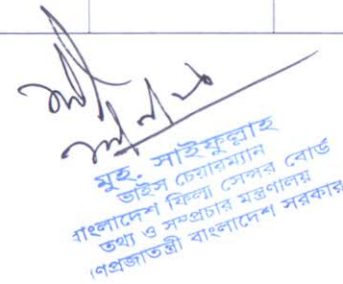 মুহ. সাইফুল্লাহ
ভাইস চেয়ারম্যান
বাংলাদেশ ফিল্ম সেন্সর বোর্ড
তথ্য ও সম্প্রচার মন্ত্রণালয়
গণপ্রজাতন্ত্রী বাংলাদেশ সরকার